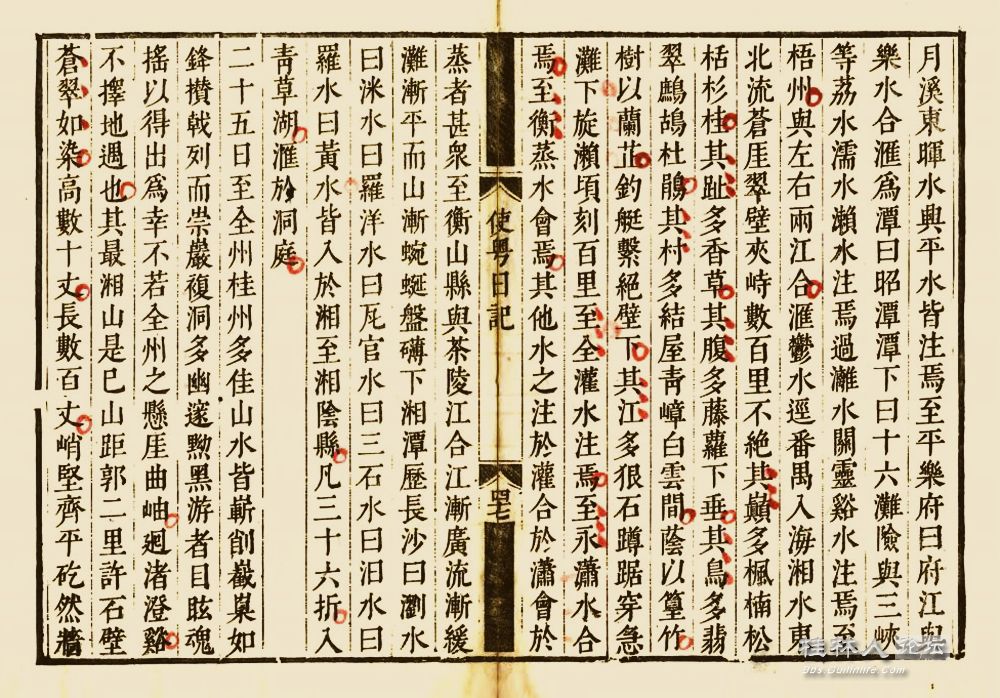 月溪東暉水與平水皆注焉至平樂府曰府江與
樂水合滙爲潭曰昭潭潭下曰十六灘險與三峽
等荔水濡水瀨水注焉過灕水關靈谿水注焉至
梧州與左右兩江合滙鬱水逕番禺入海湘水東
北流蒼厓翠壁夾峙數百里不絕其巔多楓楠松
栝杉桂其趾多香草其腹多藤蘿下垂其鳥多翡
翠鷓鴣杜鵑其村多結屋靑嶂白雲間蔭以篁竹
樹以蘭茝釣艇繫絕壁下其江多狠石蹲踞穿急
灘下旋瀨頃刻百里至全灌水注焉至永瀟水合
焉至衡蒸水會焉其他水之注於灌合於瀟會於
使粵日記
蒸者甚衆至衡山縣與茶陵江合江漸廣流漸緩
灘漸平而山漸蜿蜒盤礴下湘潭歷長沙曰瀏水
曰洣水曰羅洋水曰瓦官水曰三石水曰汨水曰
羅水曰黃水皆入於湘至湘陰縣凡三十六折入
靑草湖滙於洞庭
二十五日至全州桂州多佳山水皆嶄削巀嵲如
鋒攅戟列而崇巖複洞多幽邃黝黑游者目眩魂
搖以得出爲幸不若全州之懸厓曲岫廻渚澄谿
不擇地遇也其最湘山是已山距郭二里許石壁
蒼翠如染高數十丈長數百丈峭堅齊平矻然牆
桂林人论坛
bbs.guilinlife.com